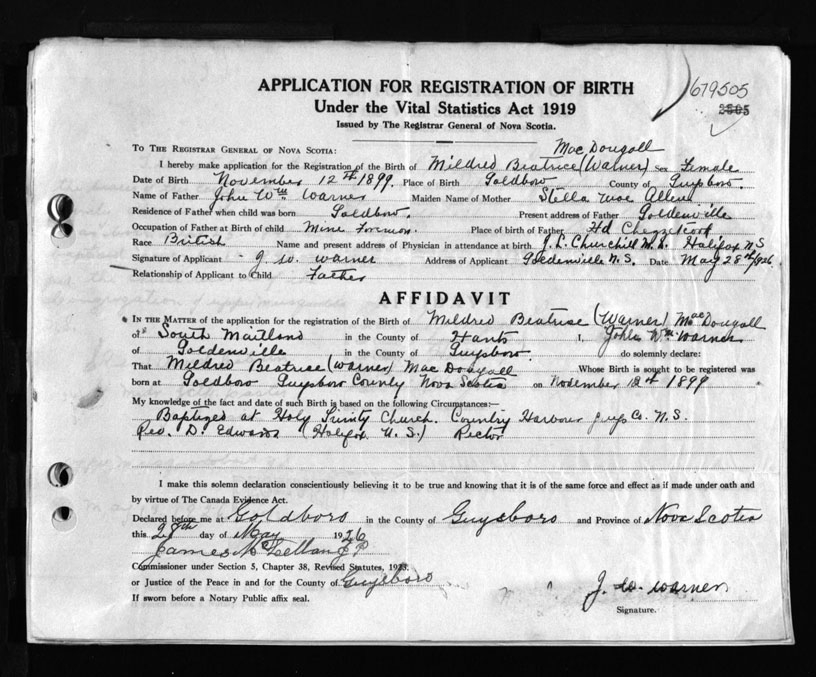 APPLICATION FOR REGISTRATION OF BIRTH
679505
Under the Vital Statistics Act 1919
Issued by The Registrar General of Nova Scotia.
TO THE REGISTRAR GENERAL OF NOVA SCOTIA: MacDougall
I hereby make application for the Registration of the Birth of Mildred Beatrice (Warner) Sex Female
Date of Birth November 12th 1899. Place of Birth Goldboro County of Guysboro.
Name of Father John Wm Warner Maiden Name of Mother Stella Mae Allen
Residence of Father when child was born Goldboro. Present address of Father Goldenville
Occupation of Father at Birth of child Mine Forman. Place of birth of Father Hd
Race British Name and present address of Physician in attendance at birth J. L. Churchill Halifax N S
Signature of Applicant J. W. Warner Address of Applicant Goldenville N. S. Date May 28th/1926
Relationship of Applicant to Child Father
AFFIDAVIT
IN THE MATTER of the application for the registration of the Birth of Mildred Beatrise (Warner) MacDougall
of South Maitland in the County of Hants I, John Wm Warner
of Goldenville in the County of Guysboro. do solemnly declare:
That Mildred Beatrice (Warner) MacDougall Whose Birth is sought to be registered was
born at Goldboro Guysboro County Nova Scotia on November 12th 1899
My knowledge of the fact and date of such Birth is based on the following Circumstances:—
Baptized at Holy Trinity Church. Country Harbour Guys Co. N. S.
Rev. D. Edwards (Halifax N. S.) Rector
I make this solemn declaration conscientiously believing it to be true and knowing that it is of the same force and effect as if made under oath and
by virtue of The Canada Evidence Act.
Declared before me at Goldboro in the County of Guysboro and Province of Nova Scotia
this 28th day of May 1926
James McLellan J P
Commissioner under Section 5, Chapter 38, Revised Statutes, 1923.
or Justice of the Peace in and for the County of Guysboro
If sworn before a Notary Public affix seal.
J. W. Warner
Signature.